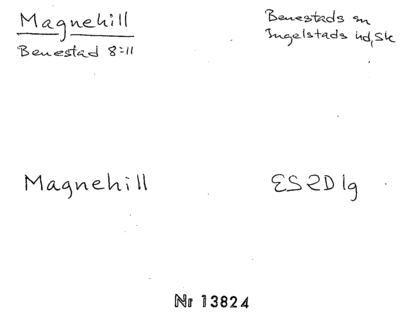 Magnehill
Benestad 8:11
Benestads sn
Ingelstads hd, Sk
Magnehill
ES2D1g
Nr 13824